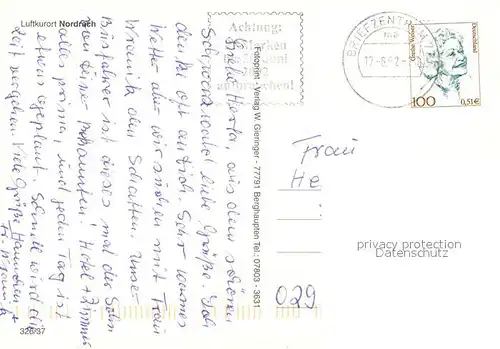 Luftkurort Nordrach
Liebe Herta, aus dem schönen
Schwarzwald liebe Grüße. Ich
denke oft an dich. Sehr warmes
Wetter aber wir suchen mit Frau
den Schatten. Unser
Busfahrer ist dieses mal der Sohn
von Bekannten. Hotel + Zimmer
alles prima, und jeden Tag ist
etwas geplant. Schnell wird die
Zeit vergehen. Viele Grüße
326/37
Fotoprint - Verlag W. Gieringer - 77791 Berghaupten Tel.: 07803 - 3631
Achtung:
Marken
2002
aufbrauchen!
BRIEFZENTRUM 77
ma
17.-6.02.-
Grethe Weiser
Deutschland
100
0,51€
Frau
He
privacy protection
Datenschutz
029